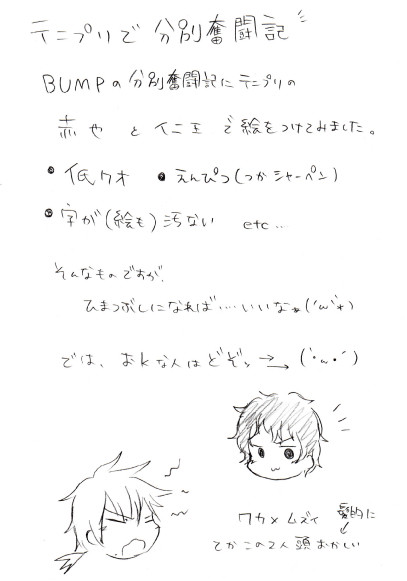 テニプリで分別奮闘記
BUMPの分別奮闘記にテニプリの
赤也と仁王で絵をつけてみました。
• 低クオ • えんぴつ(つかシャーペン)
• 字が(絵も)汚ない etc…
そんなものですが、
ひまつぶしになれば‥‥いいなぁ('ω'*)
では、おkな人はどぞッ→→ (`・ω・´)
ワカメムズイ
髪的に
↓
てかこの2人頭おかしい